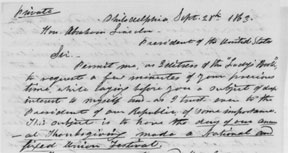 Private
Philadelphia, Sept. 28th 1863.
Hon. Abraham Lincoln
President of the United States
Sir.
Permit me, as Editress of the Lady's Book,
to request a few minutes of your precious
time, while laying before you a subject of deep
interest to myself and as I trust even to the
President of our Republic, of some importance.
This subject is to have the day of our ann-
ual Thanksgiving made a National and
fixed Union Festival.